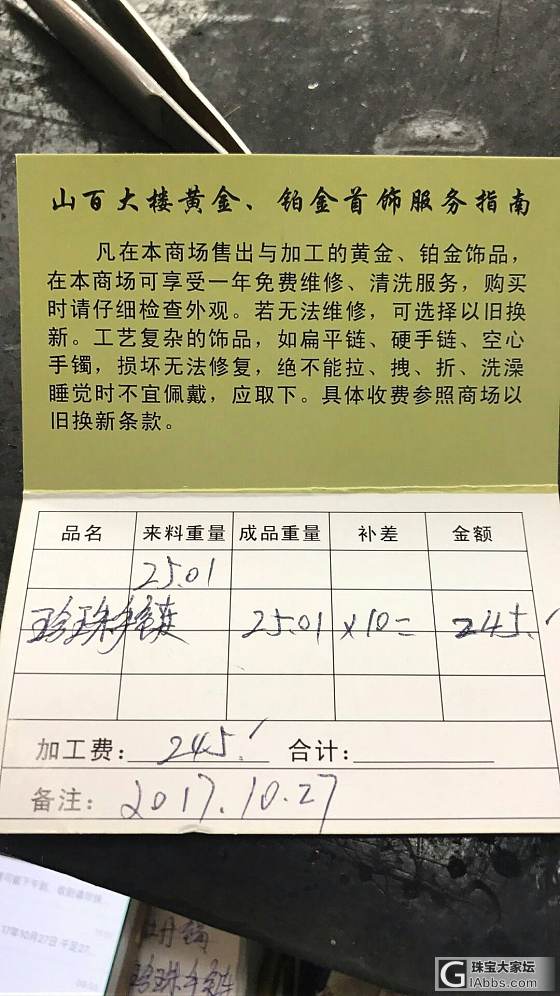 山百大楼黄金、铂金首饰服务指南
凡在本商场售出与加工的黄金、铂金饰品，
在本商场可享受一年免费维修、清洗服务，购买
时请仔细检查外观。若无法维修，可选择以旧换
新。工艺复杂的饰品，如扁平链、硬手链、空心
手镯，损坏无法修复，绝不能拉、拽、折、洗澡
睡觉时不宜佩戴，应取下。具体收费参照商场以
旧换新条款。
品名 来料重量 成品重量 补差 金额
25.01
珍珠手链 25.01 ×10= 245.
加工费：245. 合计：
备注：2017.10.27
17年10月27日 午
珍珠手链
珠宝大家坛
GIAbbs.com